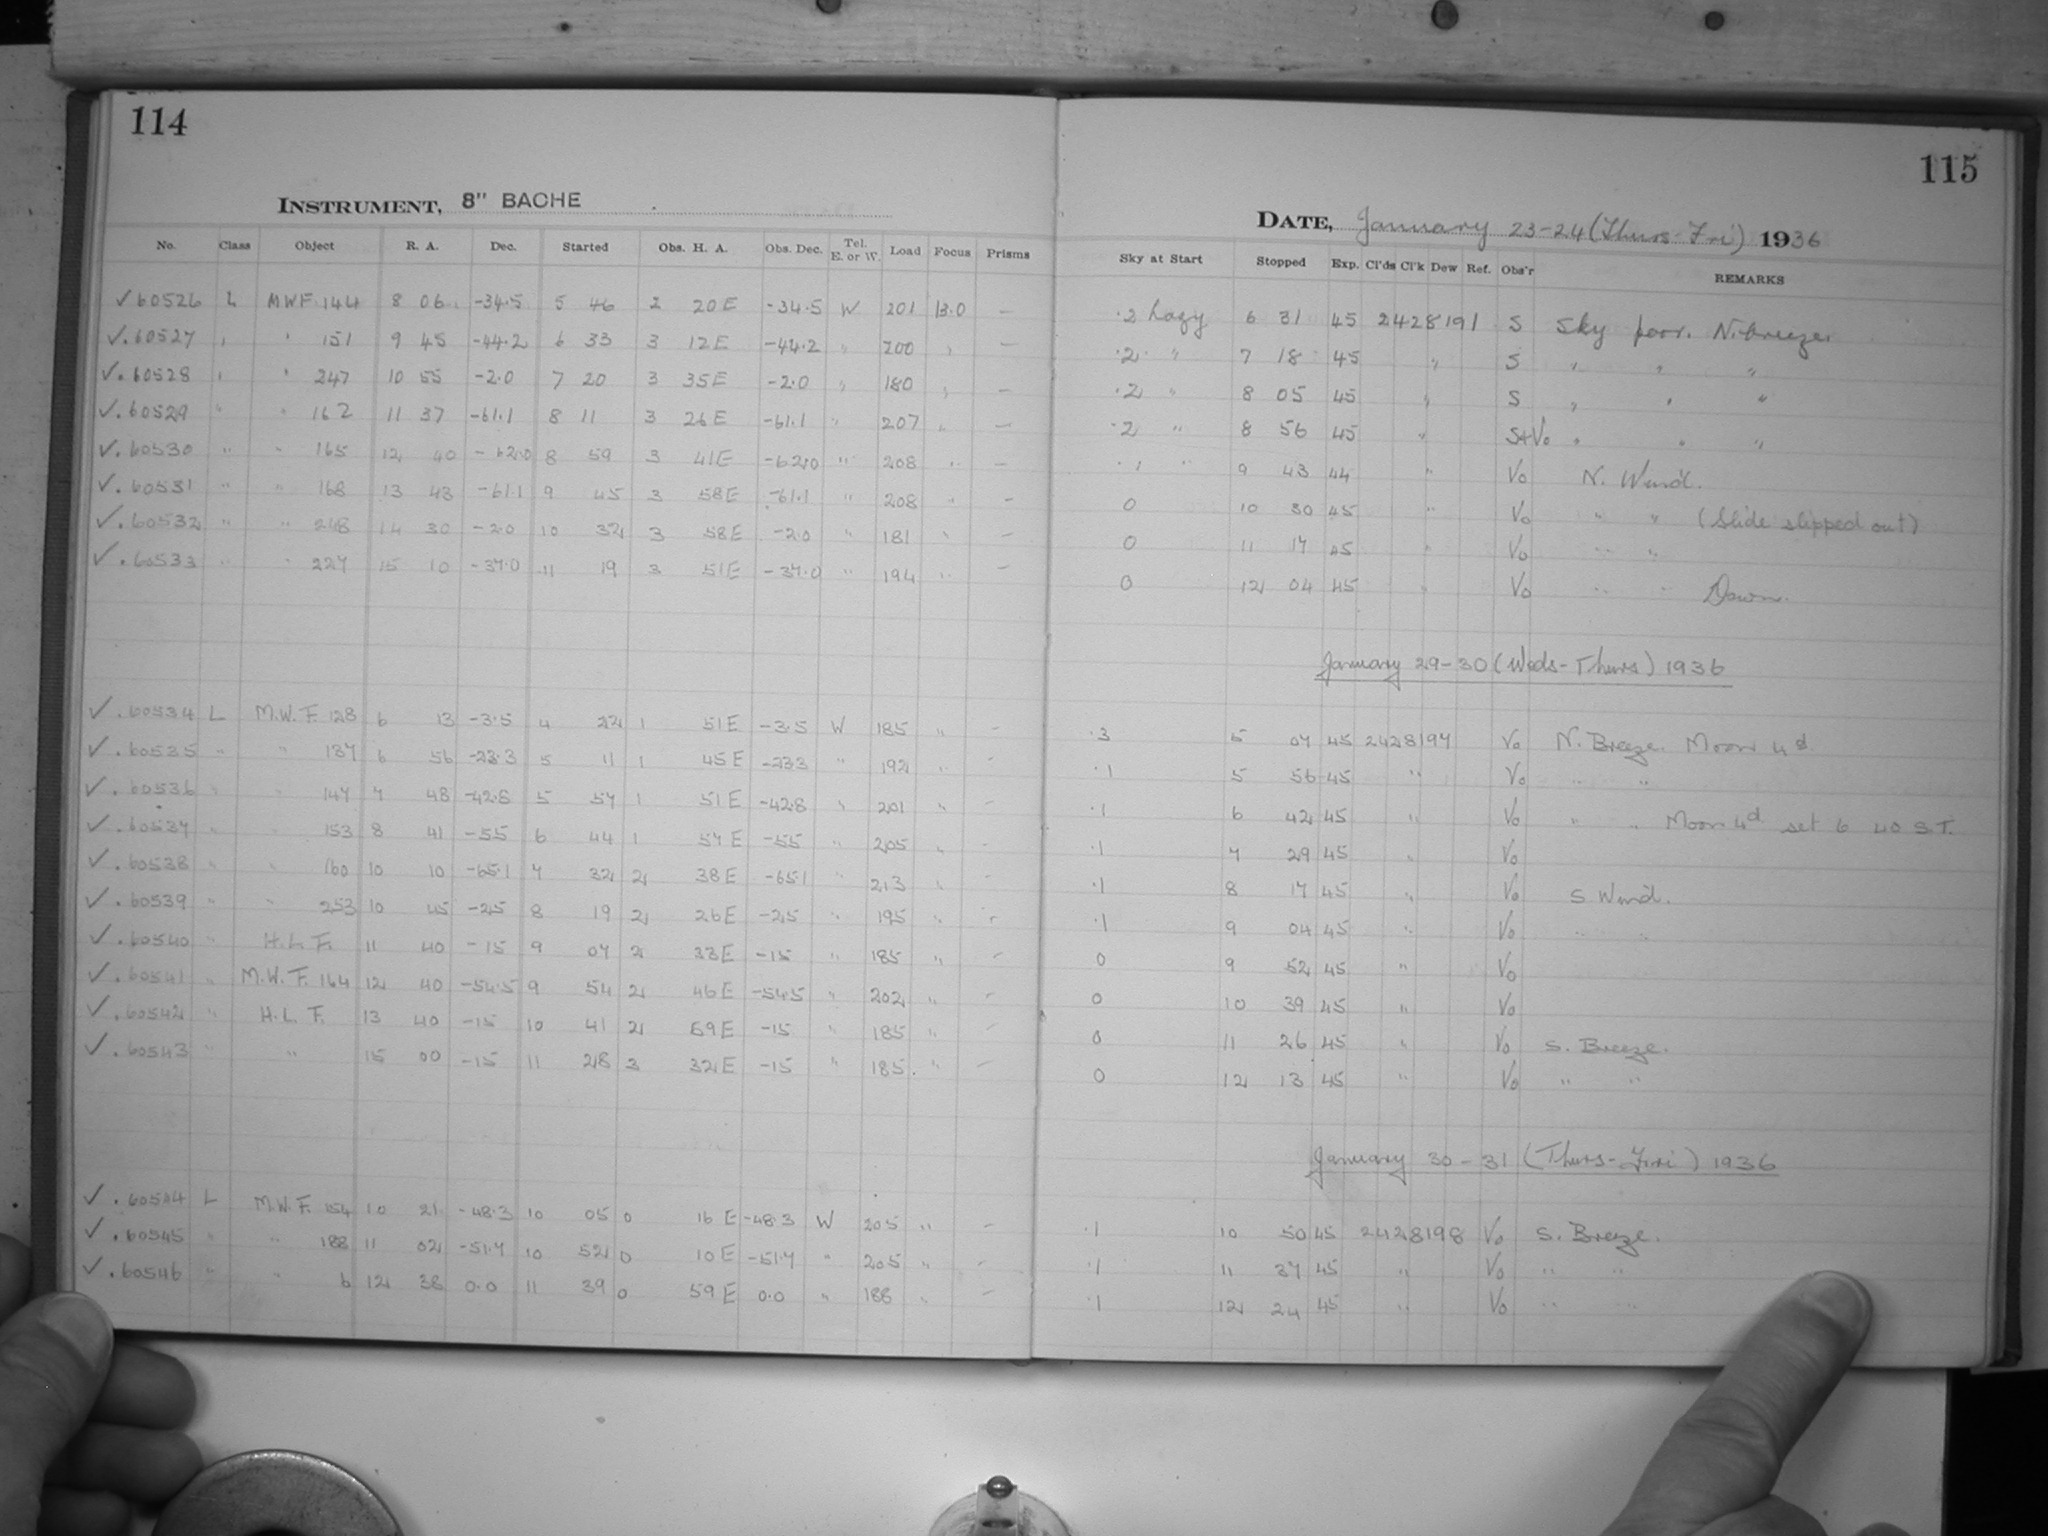 114
INSTRUMENT, 8" BACHE
No. Class Object R. A. Dec. Started Obs. H. A. Obs. Dec. Tel. E. or W. Load Focus Prisms
✓60526 L MWF 144 8 06 -34.5 5 46 2 20E -34.5 W 201 13.0 —
✓.60527 " " 151 9 45 -44.2 6 33 3 12E -44.2 " 200 " —
✓.60528 " " 247 10 55 -2.0 7 20 3 35E -2.0 " 180 " —
✓.60529 " " 162 11 37 -61.1 8 11 3 26E -61.1 " 207 " —
✓.60530 " " 165 12 40 -62.0 8 59 3 41E -62.0 " 208 " —
✓.60531 " " 168 13 43 -61.1 9 45 3 58E -61.1 " 208 " —
✓.60532 " " 248 14 30 -2.0 10 32 3 58E -2.0 " 181 " —
✓.60533 " " 227 15 10 -37.0 11 19 3 51E -37.0 " 194 " —
✓.60534 L M.W.F. 128 6 13 -3.5 4 22 1 51E -3.5 W 185 " —
✓.60535 " " 137 6 56 -23.3 5 11 1 45E -23.3 " 192 " —
✓.60536 " " 147 7 48 -42.8 5 57 1 51E -42.8 " 201 " —
✓.60537 " " 153 8 41 -55 6 44 1 57E -55 " 205 " —
✓.60538 " " 160 10 10 -65.1 7 32 2 38E -65.1 " 213 " —
✓.60539 " " 253 10 45 -25 8 19 2 26E -25 " 195 " —
✓.60540 " H.L.F. 11 40 -15 9 07 2 33E -15 " 185 " —
✓.60541 " M.W.F. 164 12 40 -54.5 9 54 2 46E -54.5 " 202 " —
✓.60542 " H.L.F. 13 40 -15 10 41 2 59E -15 " 185 " —
✓.60543 " " 15 00 -15 11 28 3 32E -15 " 185 " —
✓.60544 L M.W.F. 154 10 21 -48.3 10 05 0 16E -48.3 W 205 " —
✓.60545 " " 188 11 02 -51.7 10 52 0 10E -51.7 " 205 " —
✓.60546 " " 6 12 38 0.0 11 39 0 59E 0.0 " 188 " —
115
DATE, January 23-24 (Thurs-Fri) 1936
Sky at Start Stopped Exp. Cl'ds Cl'k Dew Ref. Obs'r REMARKS
.2 hazy 6 31 45 2428191 S Sky poor. N. breeze.
.2 " 7 18 45 " S " " "
.2 " 8 05 45 " S " " "
.2 " 8 56 45 " S+Vo " " "
.1 " 9 43 44 " Vo N. Wind.
0 10 30 45 " Vo " " (Slide slipped out)
0 11 17 45 " Vo " "
0 12 04 45 " Vo " " Dawn.
January 29-30 (Weds-Thurs) 1936
.3 5 07 45 2428197 Vo N. Breeze. Moon 4d
.1 5 56 45 " Vo " "
.1 6 42 45 " Vo " " Moon 4d set 6 40 S.T.
.1 7 29 45 " Vo
.1 8 17 45 " Vo S Wind.
.1 9 04 45 " Vo " "
0 9 52 45 " Vo
0 10 39 45 " Vo
0 11 26 45 " Vo S. Breeze.
0 12 13 45 " Vo " "
January 30-31 (Thurs-Fri) 1936
.1 10 50 45 2428198 Vo S. Breeze.
.1 11 37 45 " Vo " "
.1 12 24 45 " Vo " "